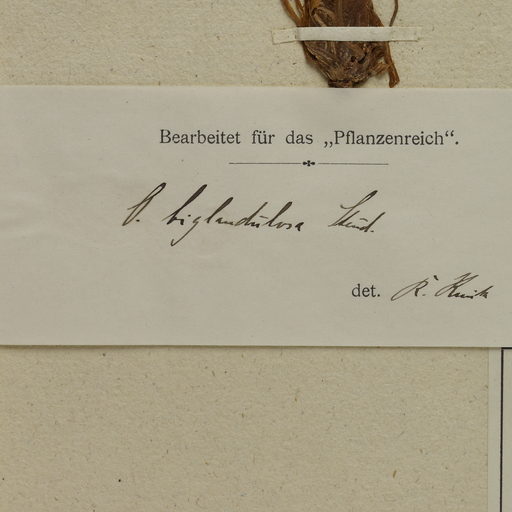 Bearbeitet für das „Pflanzenreich“.
O. biglandulosa Steud.
det. R. Knuth